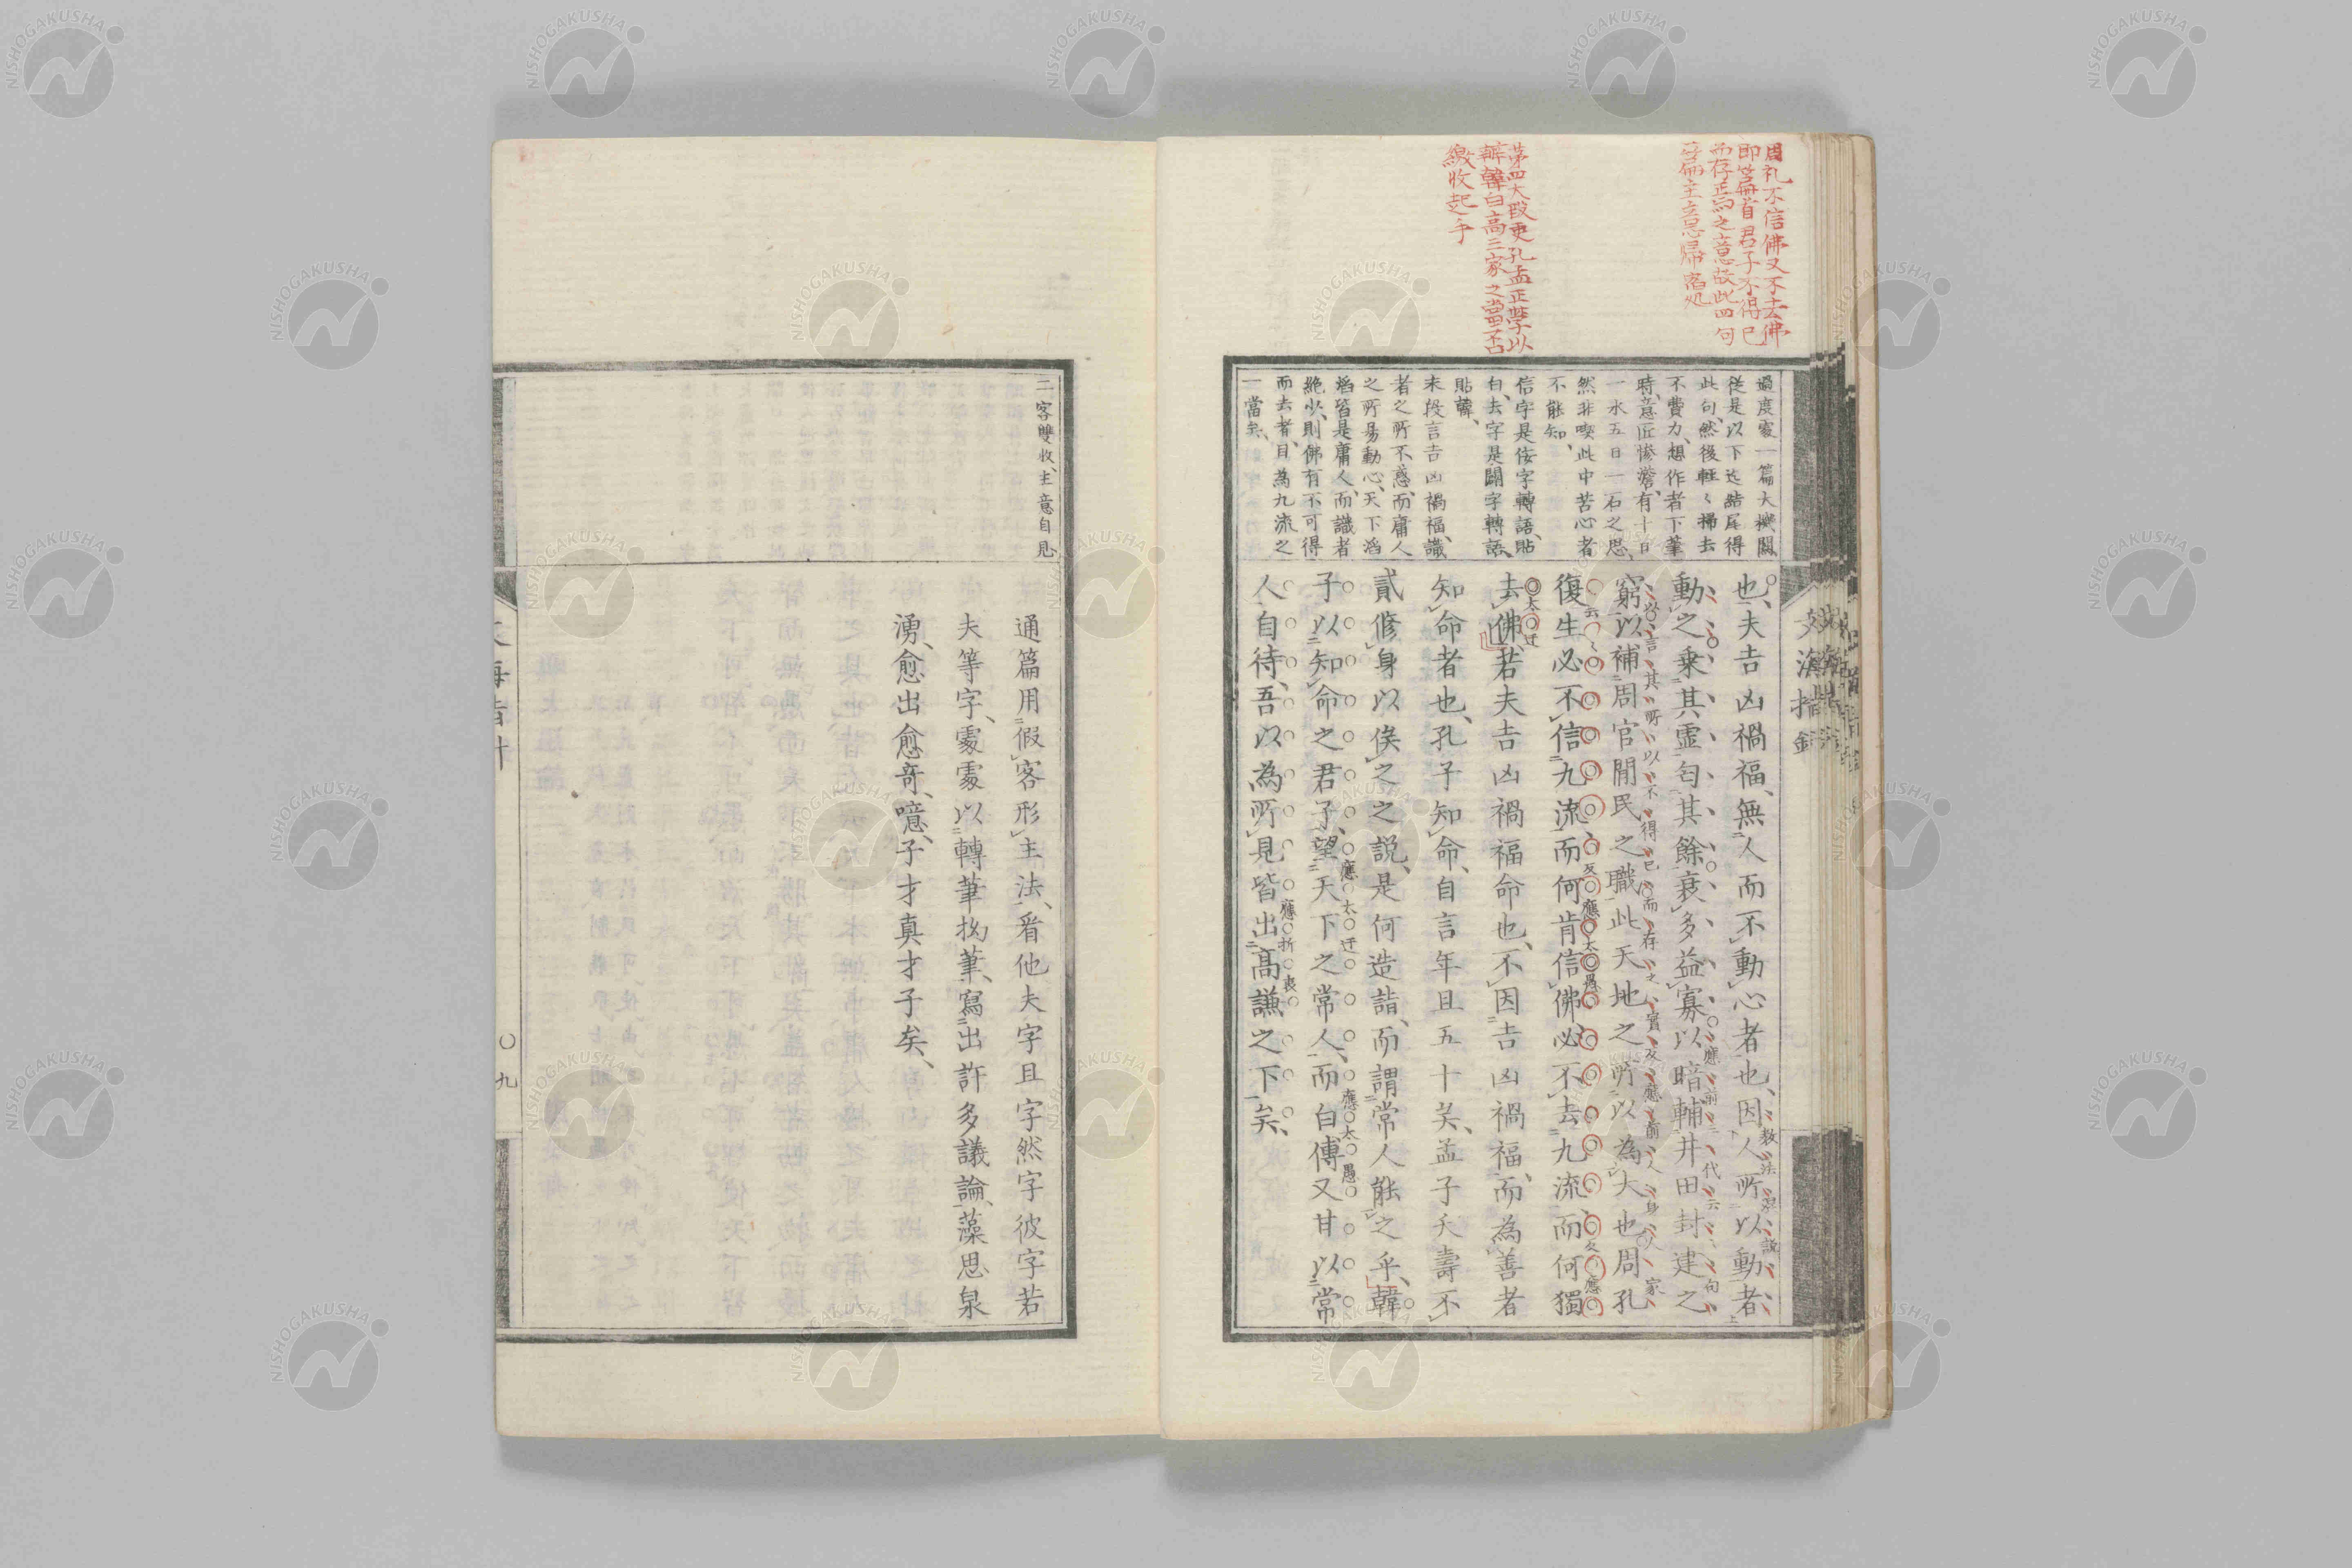 周礼不信佛又不去佛
即首君子不得已
而存正焉之意故此四句
主意帰宿処
第四大段更孔孟正学以
辨韓白高三家之当否
繳收起手
過度處一篇大機關
從是以下迄結尾得
此句、然後輕〻掃去
不費力、想作者下筆
時、意匠慘澹、有十日
一水五日一石之思、
然非喫此中苦心者
不能知、
信字是佞字轉語、貼
白、去字是闢字轉語、
貼韓、
末段言吉凶禍福、識
者之所不惑、而庸人
之所易動心、天下滔
滔皆是庸人、而識者
絶少、則佛有不可得
而去者、目為九流之
一當矣、
也、夫吉凶禍福、無人而不動心者也、因人所以動者
教法
動之乗其虛匂其餘衰多益寡以暗輔井田封建之
應前二代云〻句
窮以補周官閒民之職此天地之所以為大也周孔
以言其所以不得已而存之實反應前人身人家
復生必不信九流而何肯信佛必不去九流而何獨
反應太愚
去佛、若夫吉凶禍福命也、不因吉凶禍福、而為善者
太迂
知命者也、孔子知命、自言年且五十矣、孟子夭壽不
貳修身以俟之之説、是何造詣、而謂常人能之乎、韓
子以知命之君子、望天下之常人、而白傳又甘以常
應太迂應太愚
人自待、吾以為所見皆出高謙之下矣、
應折衷
文海指針
二客雙收、主意自見
通篇用假客形主法、看他夫字且字然字彼字若
夫等字、處處以轉筆拗筆、寫出許多議論、藻思泉
湧、愈出愈竒、噫、子才真才子矣、
〇九
NISHOGAKUSHA